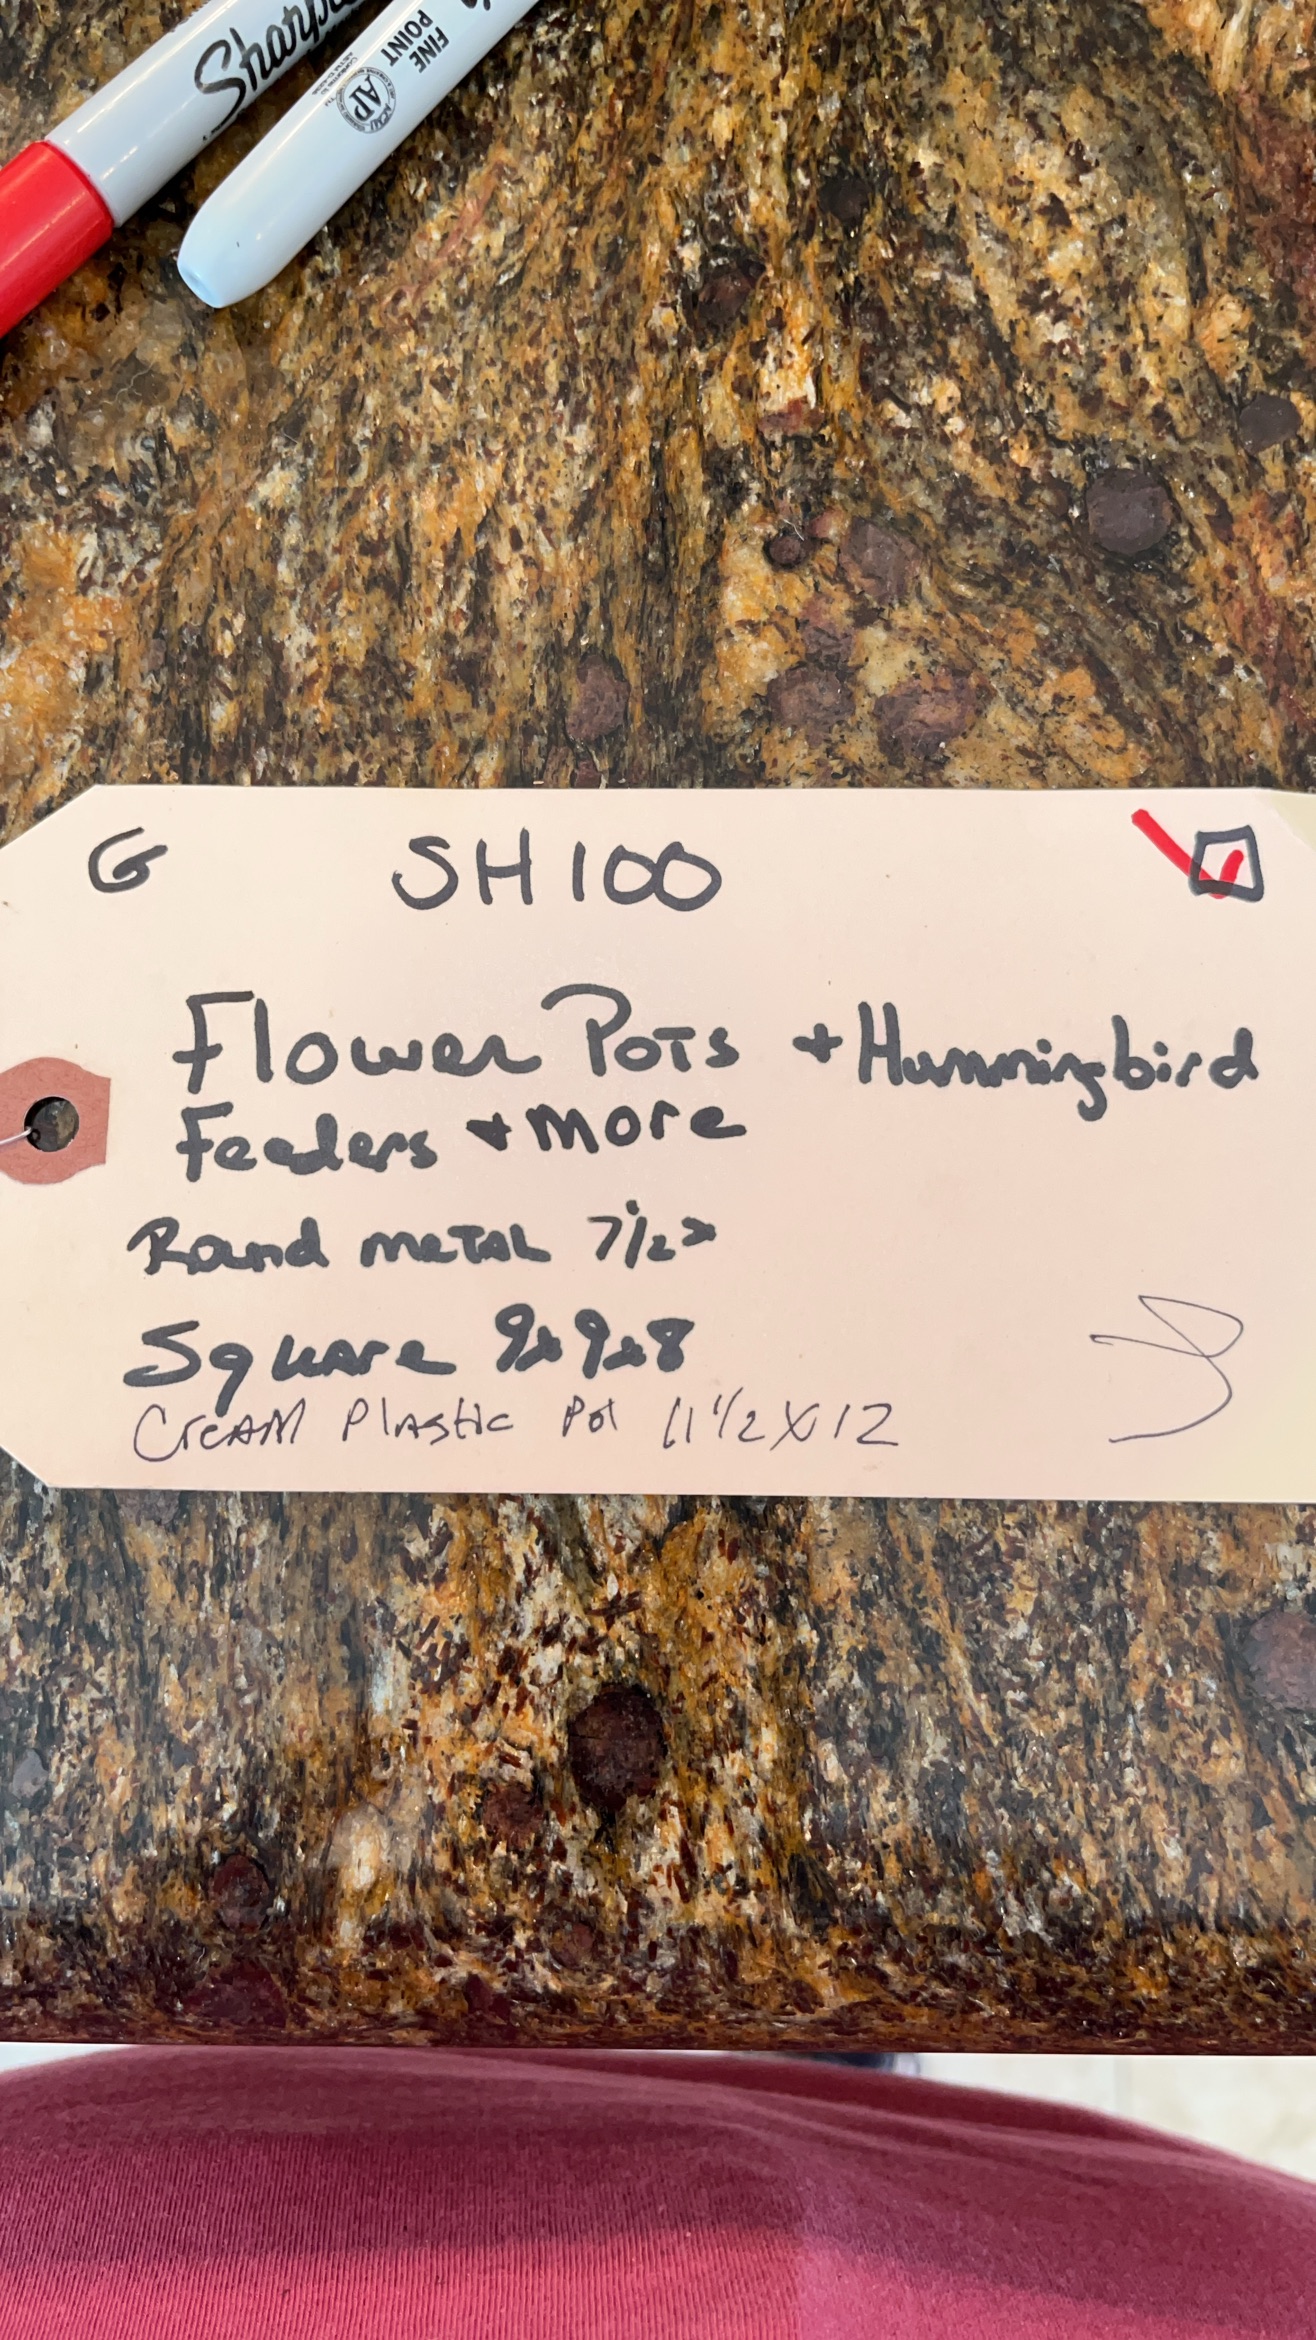 Sharpie
FINE
POINT
AP
G SH100
Flower Pots + Hummingbird
Feeders + more
Round metal 7 1/2 x
Square 9x9x8
Cream Plastic Pot 11 1/2 X 12